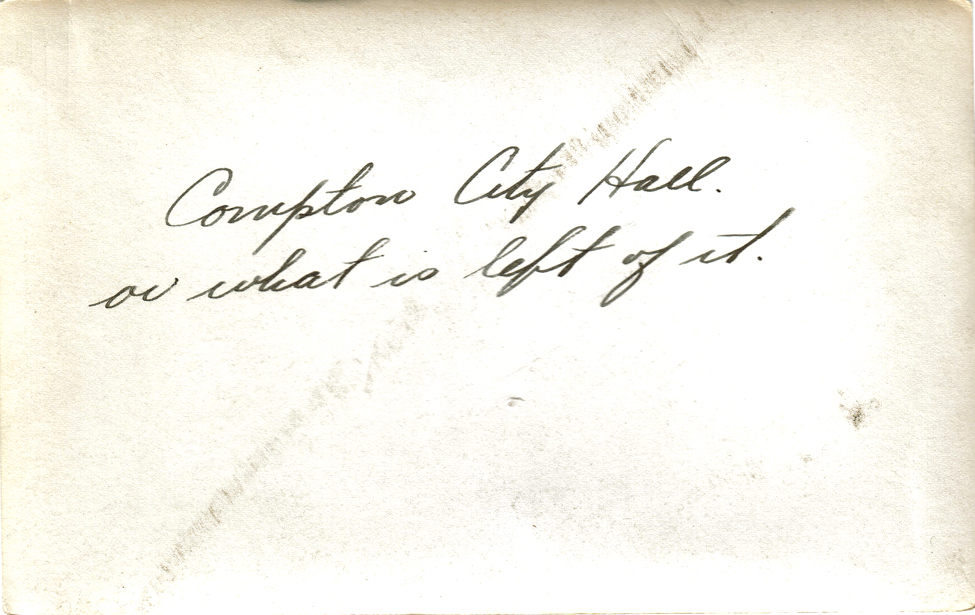 Compton City Hall.
or what is left of it.